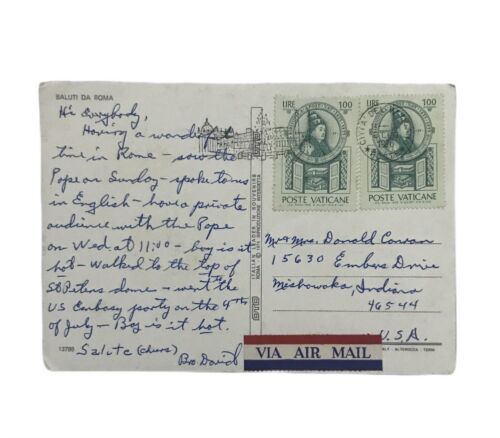 SALUTI DA ROMA
Hi Everybody,
Having a wonderful
time in Rome - saw the
Pope on Sunday - spoke to us
in English - have a private
audience with the Pope
on Wed at 11:00 - boy is it
hot - walked to the top of
St Peters dome - went the
US Embassy party on the 4th
of July - Boy is it hot.
Salute (cheers)
Bro David
13788
ITALIAN LEADER IN SOUVENIRS
ROMA
RIPRODUZIONE INTERDETTA
LIRE 100
POSTE VATICANE
LIRE 100
POSTE VATICANE
Mr & Mrs. Donald Cowan
15630 Embers Drive
Mishawaka, Indiana
46544
U.S.A.
VIA AIR MAIL
TERNI